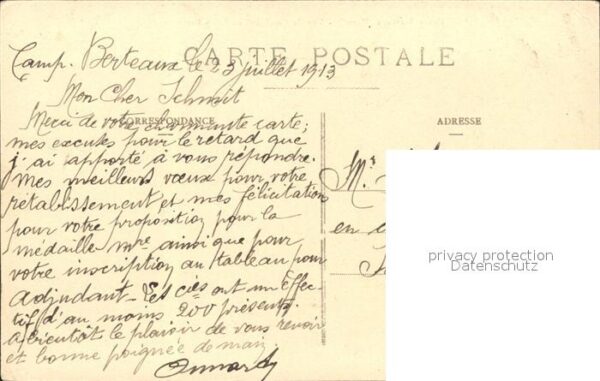 CARTE POSTALE
Camp. Berteaux le 23 juillet 1913
Mon Cher Schmit
CORRESPONDANCE
ADRESSE
Merci de votre charmante carte;
mes excuses pour le retard que
j'ai apporté à vous répondre.
Mes meilleurs vœux pour votre
rétablissement et mes félicitations
pour votre proposition pour la
médaille mre ainsi que pour
votre inscription au tableau pour
adjudant - Les cies ont un effec-
tif d'au moins 200 présents.
A bientôt le plaisir de vous revoir
et bonne poignée de main.
Mr
en
privacy protection
Datenschutz